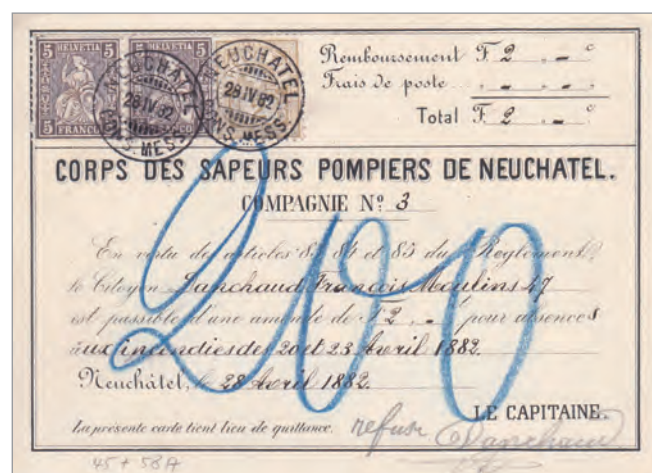 HELVETIA HELVETIA
5 5 5 5
FRANCO
NEUCHATEL NEUCHATEL
28 IV 82 28 IV 82
CONS. MESS. CONS. MESS.
Remboursement F. 2 . – c
Frais de poste . – . –
Total F. 2 . –
CORPS DES SAPEURS POMPIERS DE NEUCHATEL.
COMPAGNIE Nº 3
En vertu des articles 83 84 et 85 du Règlement
le Citoyen François Moulins 47
est passible d'une amende de F 2 . – c pour absences
aux incendies des 20 et 23 Avril 1882.
Neuchâtel, le 28 Avril 1882.
200
LE CAPITAINE.
La présente carte tient lieu de quittance.
refusé
45 + 58A